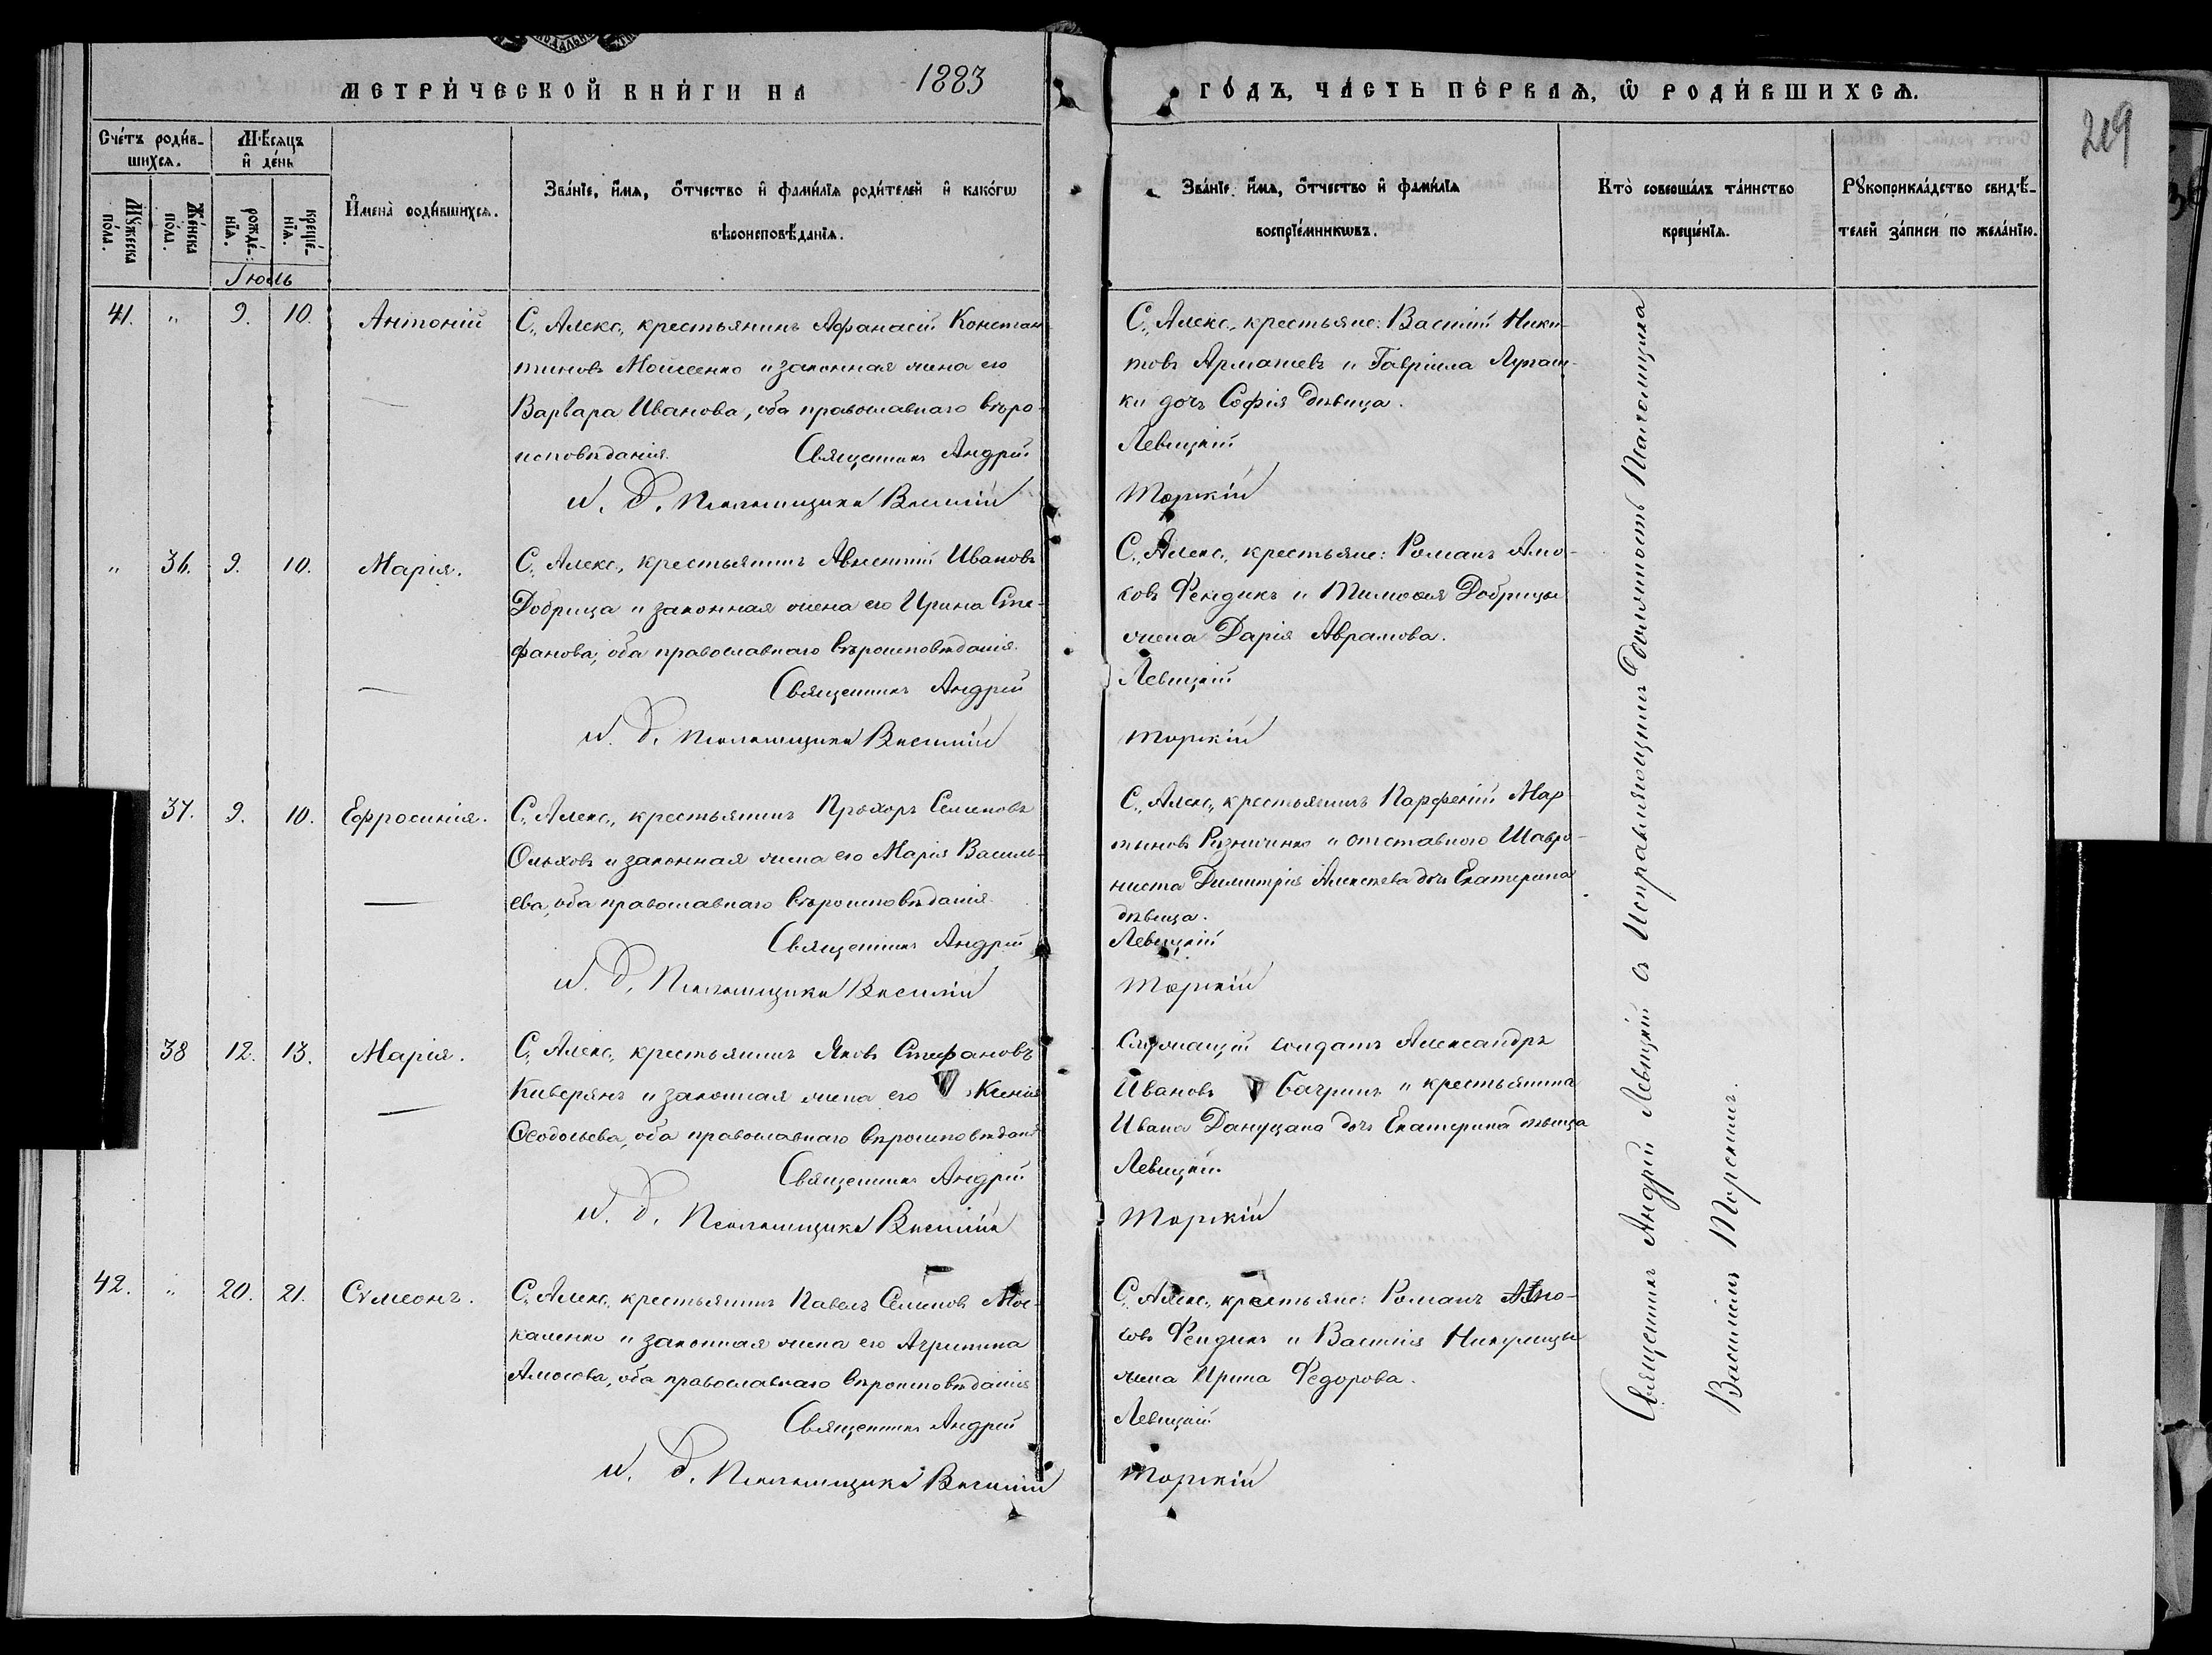 МЕТРИ́ЧЕСКОЙ КНИ́ГИ НА 1883
ГО́ДЪ, ЧА́СТЬ ПЕ́РВАѦ, Ѡ РОДИ́ВШИХСѦ.
219
Сче́тъ роди́в-
шихсѧ.
Мꙋ́жеска
по́ла.
Же́нска
по́ла.
Мѣ́сѧцъ
и҆ де́нь
рожде́-
нїѧ.
креще́-
нїѧ.
Іюль
И҆мена̀ роди́вшихсѧ.
Зва́нїе, и҆́мѧ, ѻ҆́тчество и҆ фами́лїѧ роди́телей и҆ како́гѡ
вѣроисповѣ́данїѧ.
Зва́нїе, и҆́мѧ, ѻ҆́тчество и҆ фами́лїѧ
воспрїе́мникѡвъ.
Кто̀ соверша́лъ та́инство
креще́нїѧ.
Рꙋкоприкла́дство свидѣ́-
телей за́писи по жела́нїю.
41. " 9. 10. Антоній
С. Алекс. крестьянинъ Афанасій Констан-
тиновъ Мойсеенко и законная жена его
Варвара Иванова, оба православнаго вѣро-
исповѣданія.
Священникъ Андрей
И. д. Псаломщика Василій
С. Алекс. крестьяне: Василій Ники-
товъ Арматевъ и Гавріила Лупаш-
ки дочь Софія дѣвица.
Левицкій
Торскій
" 36. 9. 10. Марія.
С. Алекс. крестьянинъ Авксентій Ивановъ
Добрица и законная жена его Ирина Сте-
фанова, оба православнаго вѣроисповѣданія.
Священникъ Андрей
И. д. Псаломщика Василій
С. Алекс. крестьяне: Романъ Амо-
совъ Фендикъ и Тимоѳея Добрицы
жена Дарія Аврамова.
Левицкій
Торскій
37. 9. 10. Ефросинія.
С. Алекс. крестьянинъ Прохоръ Семеновъ
Ольховъ и законная жена его Марія Василь-
ева, оба православнаго вѣроисповѣданія.
Священникъ Андрей
И. д. Псаломщика Василій
С. Алекс. крестьянинъ Парфеній Мар-
тыновъ Резниченко и отставного
Димитрія Алексѣева дочь Екатерина
дѣвица.
Левицкій
Торскій
38 12. 13. Марія.
С. Алекс. крестьянинъ Яковъ Стефановъ
Киверянъ и законная жена его Ксенія
Ѳеодосьева, оба православнаго вѣроисповѣданія
Священникъ Андрей
И. д. Псаломщика Василій
Служащій солдатъ Александръ
Ивановъ Багринъ и крестьянина
Ивана Дануцана дочь Екатерина дѣвица
Левицкій
Торскій
42. " 20. 21. Сѵмеонъ.
С. Алекс. крестьянинъ Павелъ Семеновъ Мос-
каленко и законная жена его Агрипина
Амосова, оба православнаго вѣроисповѣданія
Священникъ Андрей
И. д. Псаломщика Василій
С. Алекс. крестьяне: Романъ Амо-
совъ Фендикъ и Василія Никулицы
жена Ирина Федорова.
Левицкій
Торскій
Священникъ Андрей Левицкій съ Исправляющимъ Должность Псаломщика
Василіемъ Торскимъ.